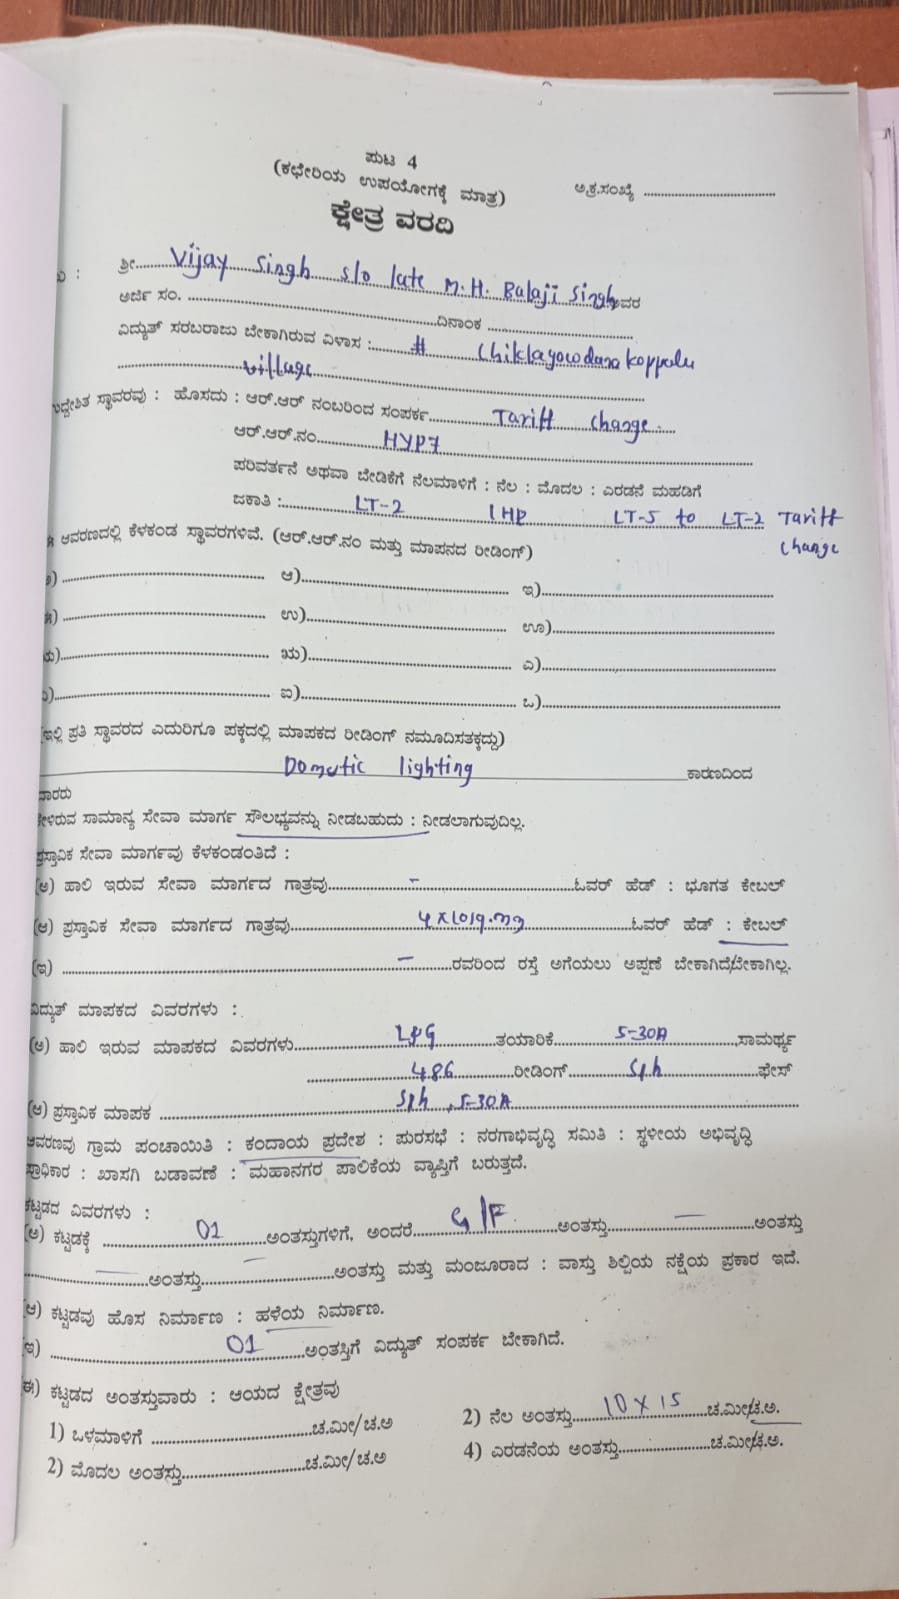 ಪುಟ 4
(ಕಛೇರಿಯ ಉಪಯೋಗಕ್ಕೆ ಮಾತ್ರ)
ಅ.ಕ್ರ.ಸಂಖ್ಯೆ ................................
ಕ್ಷೇತ್ರ ವರದಿ
ಶ್ರೀ........ Vijay Singh s/o late M.H. Balaji Singh ಅವರ
ಅರ್ಜಿ ಸಂ. ................................ದಿನಾಂಕ ................................
ವಿದ್ಯುತ್ ಸರಬರಾಜು ಬೇಕಾಗಿರುವ ವಿಳಾಸ : #
village
ಉದ್ದೇಶಿತ ಸ್ಥಾವರವು : ಹೊಸದು : ಆರ್.ಆರ್ ನಂಬರಿಂದ ಸಂಪರ್ಕ........ Tariff change.
ಆರ್.ಆರ್.ನಂ........ HYP7
ಪರಿವರ್ತನೆ ಅಥವಾ ಬೇಡಿಕೆಗೆ ನೆಲಮಾಳಿಗೆ : ನೆಲ : ಮೊದಲ : ಎರಡನೆ ಮಹಡಿಗೆ
ಜಕಾತಿ : LT-2 1HP LT-5 to LT-2 Tariff
change
ಆವರಣದಲ್ಲಿ ಕೆಳಕಂಡ ಸ್ಥಾವರಗಳಿವೆ. (ಆರ್.ಆರ್.ನಂ ಮತ್ತು ಮಾಪನದ ರೀಡಿಂಗ್)
ಅ) ................ ಆ)................ ಇ)................
ಈ) ................ ಉ)................ ಊ)................
................ ಋ)................ ಎ)................
................ ಐ)................ ಒ)................
(ಇಲ್ಲಿ ಪ್ರತಿ ಸ್ಥಾವರದ ಎದುರಿಗೂ ಪಕ್ಕದಲ್ಲಿ ಮಾಪಕದ ರೀಡಿಂಗ್ ನಮೂದಿಸತಕ್ಕದ್ದು)
Domestic lighting ಕಾರಣದಿಂದ
ಕೇಳಿರುವ ಸಾಮಾನ್ಯ ಸೇವಾ ಮಾರ್ಗ ಸೌಲಭ್ಯವನ್ನು ನೀಡಬಹುದು : ನೀಡಲಾಗುವುದಿಲ್ಲ.
ಪ್ರಸ್ತಾವಿಕ ಸೇವಾ ಮಾರ್ಗವು ಕೆಳಕಂಡಂತಿದೆ :
(ಅ) ಹಾಲಿ ಇರುವ ಸೇವಾ ಮಾರ್ಗದ ಗಾತ್ರವು........ - ........ಓವರ್ ಹೆಡ್ : ಭೂಗತ ಕೇಬಲ್
(ಆ) ಪ್ರಸ್ತಾವಿಕ ಸೇವಾ ಮಾರ್ಗದ ಗಾತ್ರವು........ 4x10sq.mm ........ಓವರ್ ಹೆಡ್ : ಕೇಬಲ್
(ಇ) ........ - ........ರವರಿಂದ ರಸ್ತೆ ಅಗೆಯಲು ಅಪ್ಪಣೆ ಬೇಕಾಗಿದೆ/ಬೇಕಾಗಿಲ್ಲ.
ವಿದ್ಯುತ್ ಮಾಪಕದ ವಿವರಗಳು :
(ಅ) ಹಾಲಿ ಇರುವ ಮಾಪಕದ ವಿವರಗಳು........ L&G ........ತಯಾರಿಕೆ........ 5-30A ........ಸಾಮರ್ಥ್ಯ
486 ........ರೀಡಿಂಗ್........ Sph ........ಫೇಸ್
(ಆ) ಪ್ರಸ್ತಾವಿಕ ಮಾಪಕ ........ Sph, 5-30A
ಆವರಣವು ಗ್ರಾಮ ಪಂಚಾಯಿತಿ : ಕಂದಾಯ ಪ್ರದೇಶ : ಪುರಸಭೆ : ನರಗಾಭಿವೃದ್ಧಿ ಸಮಿತಿ : ಸ್ಥಳೀಯ ಅಭಿವೃದ್ಧಿ
ಪ್ರಾಧಿಕಾರ : ಖಾಸಗಿ ಬಡಾವಣೆ : ಮಹಾನಗರ ಪಾಲಿಕೆಯ ವ್ಯಾಪ್ತಿಗೆ ಬರುತ್ತದೆ.
ಕಟ್ಟಡದ ವಿವರಗಳು :
(ಅ) ಕಟ್ಟಡಕ್ಕೆ ........ 01 ........ಅಂತಸ್ತುಗಳಿಗೆ, ಅಂದರೆ........ G/F ........ಅಂತಸ್ತು........ — ........ಅಂತಸ್ತು
........ — ........ಅಂತಸ್ತು........ — ........ಅಂತಸ್ತು ಮತ್ತು ಮಂಜೂರಾದ : ವಾಸ್ತು ಶಿಲ್ಪಿಯ ನಕ್ಷೆಯ ಪ್ರಕಾರ ಇದೆ.
(ಆ) ಕಟ್ಟಡವು ಹೊಸ ನಿರ್ಮಾಣ : ಹಳೆಯ ನಿರ್ಮಾಣ.
(ಇ) ........ 01 ........ಅಂತಸ್ತಿಗೆ ವಿದ್ಯುತ್ ಸಂಪರ್ಕ ಬೇಕಾಗಿದೆ.
(ಈ) ಕಟ್ಟಡದ ಅಂತಸ್ತುವಾರು : ಆಯದ ಕ್ಷೇತ್ರವು
1) ಒಳಮಾಳಿಗೆ ................ಚ.ಮೀ/ಚ.ಅ 2) ನೆಲ ಅಂತಸ್ತು........ 10 x 15 ........ಚ.ಮೀ/ಚ.ಅ.
2) ಮೊದಲ ಅಂತಸ್ತು................ಚ.ಮೀ/ಚ.ಅ 4) ಎರಡನೆಯ ಅಂತಸ್ತು................ಚ.ಮೀ/ಚ.ಅ.